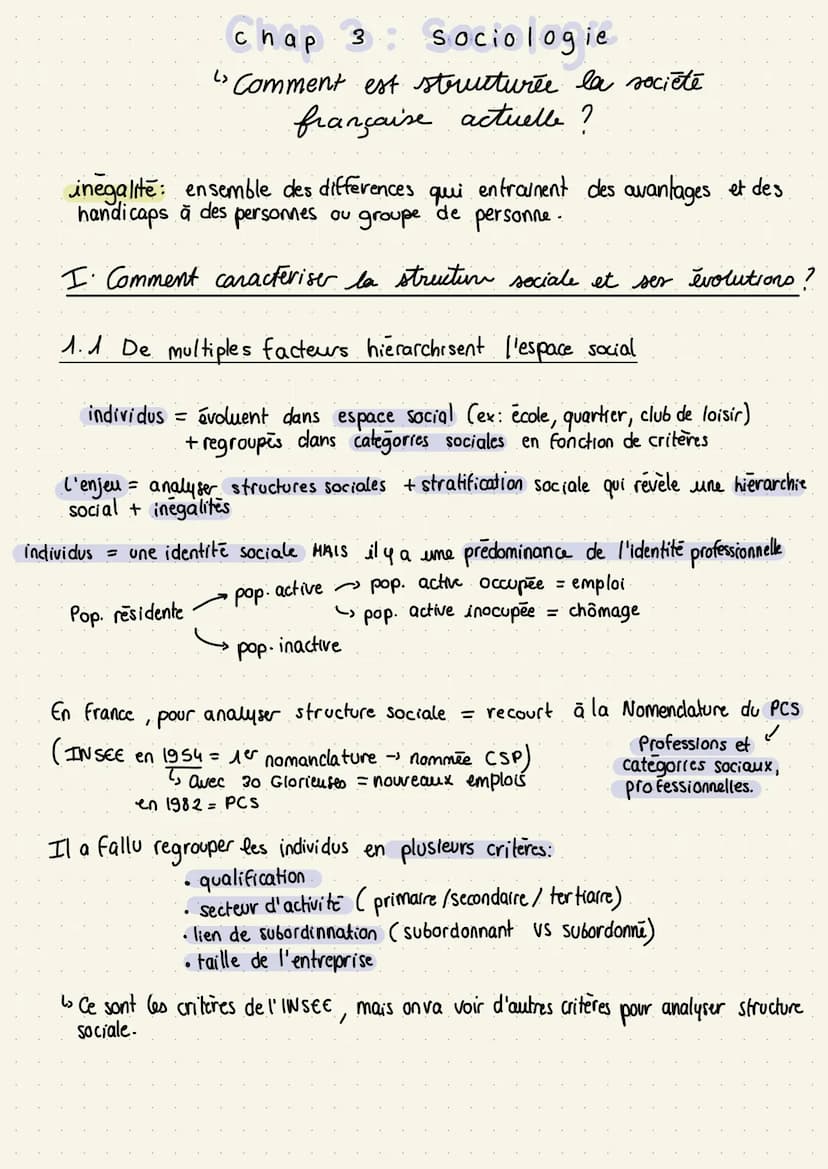 Chap 3 : Sociologie
↳ Comment est structurée la société
française actuelle ?
inégalité : ensemble des différences qui entrainent des avantages et des
handicaps à des personnes ou groupe de personne.
I. Comment caractériser la structure sociale et ses évolutions ?
1.1 De multiples facteurs hiérarchisent l'espace social
individus = évoluent dans espace social (ex: école, quartier, club de loisir)
+ regroupés dans catégories sociales en fonction de critères
L'enjeu = analyser structures sociales + stratification sociale qui révèle une hiérarchie
social + inégalités
individus = une identité sociale MAIS il y a une prédominance de l'identité professionnelle
Pop. résidente → pop. active → pop. active occupée = emploi
↳ pop. active inocupée = chômage
↳ pop. inactive
En france, pour analyser structure sociale = recourt à la Nomenclature du PCS
(INSEE en 1954 = 1er nomanclature → nommée CSP)
↳ avec 30 Glorieuses = nouveaux emplois
en 1982 = PCS
Professions et
catégories sociaux,
professionnelles.
Il a fallu regrouper les individus en plusieurs critères:
• qualification
• secteur d'activité ( primaire / secondaire / tertiaire)
• lien de subordinnation ( subordonnant VS subordonné)
• taille de l'entreprise
↳ Ce sont les critères de l'INSEE, mais on va voir d'autres critères pour analyser structure
sociale.